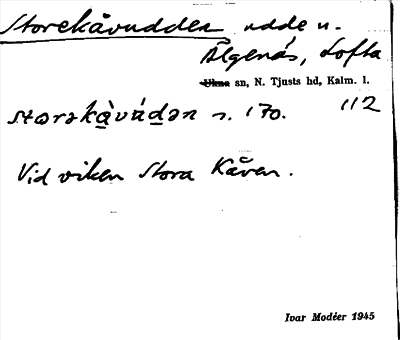 Storekåvudden udde n.
Älgenäs, Lofta
Ukna sn, N. Tjusts hd, Kalm. l.
storəkå̀vúdən s. 170. 112
Vid viken Stora Kåven.
Ivar Modéer 1945